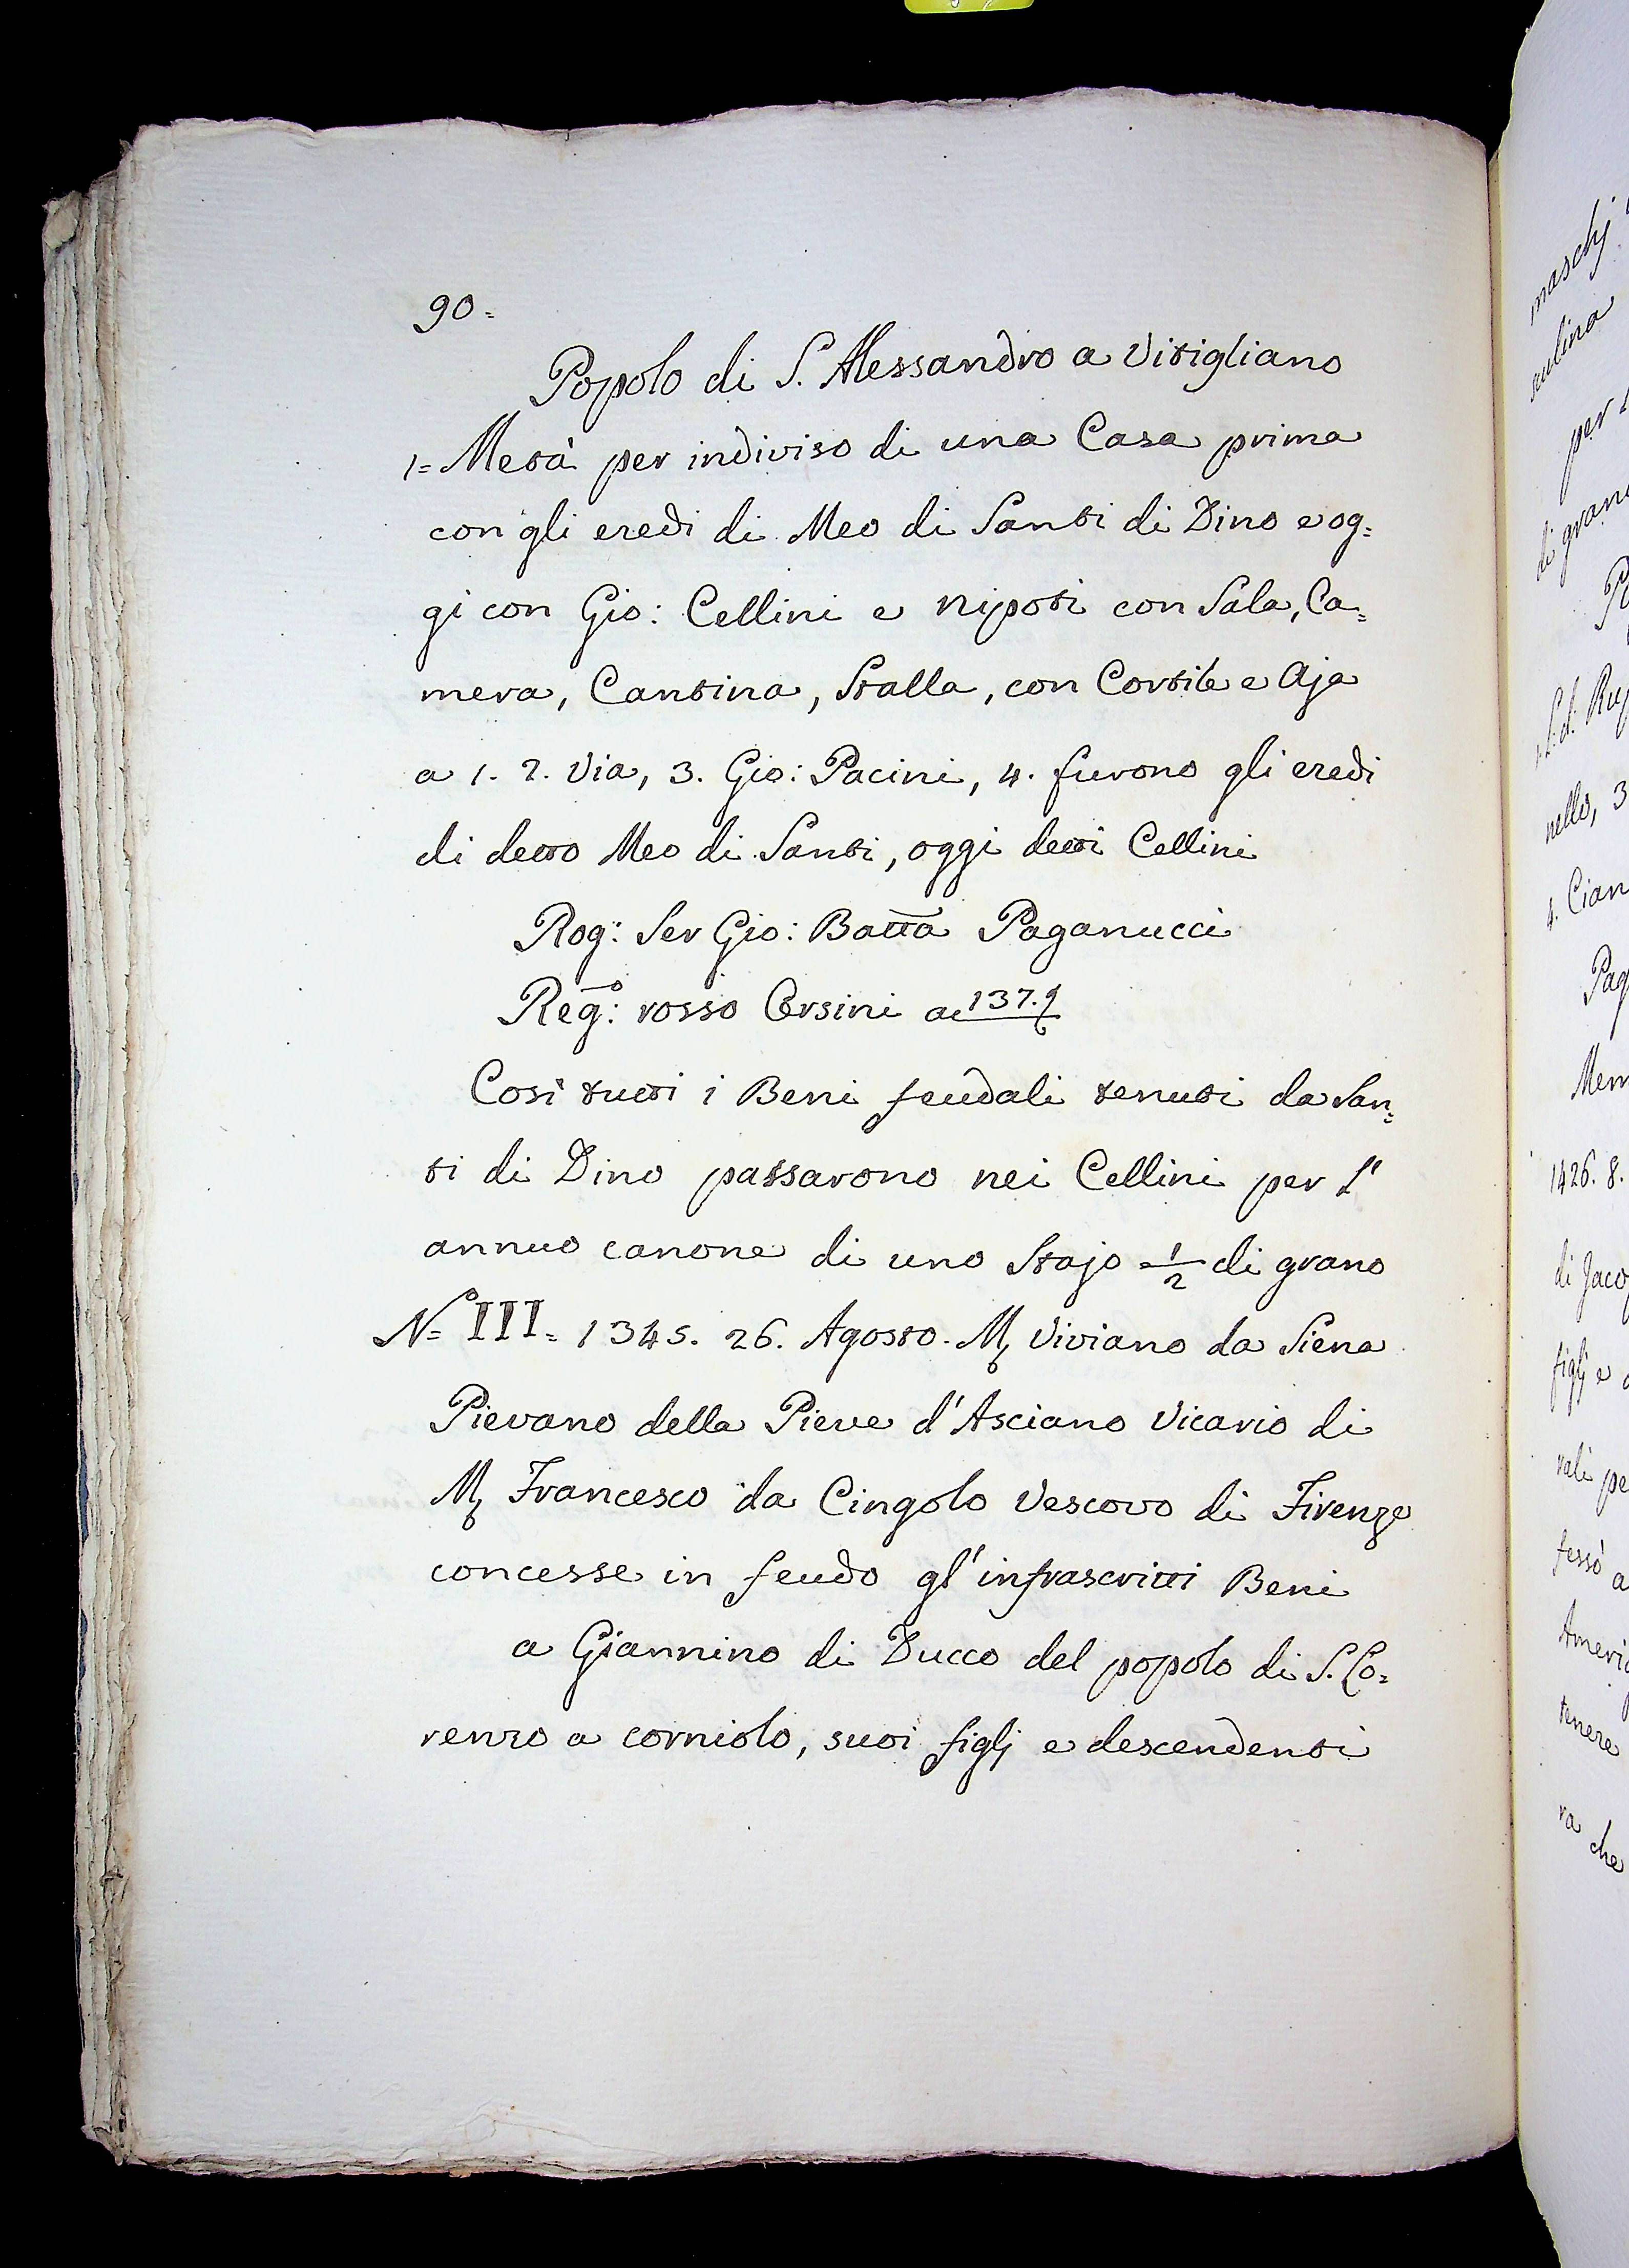 90=
Popolo di S. Alessandro a Vitigliano
1= Metà per indiviso di una Casa prima
con gli eredi di Meo di Santi di Dino e og=
gi con Gio: Cellini e nipoti con Sala, Ca=
mera, Cantina, Stalla, con Cortile e Aja
a 1. 2. Via, 3. Gio: Pacini, 4. furono gli eredi
di detto Meo di Santi, oggi detti Cellini
Rog: Ser Gio: Batta Paganucci
Reg.º: rosso Orsini a 137.
Così tutti i Beni feudali tenuti da San=
ti di Dino passarono nei Cellini per l'
annuo canone di uno Stajo 1/2 di grano
Nº= III= 1345. 26. Agosto. M, Viviano da Siena
Pievano della Pieve d'Asciano Vicario di
M, Francesco da Cingolo Vescovo di Firenze
concesse in feudo gl'infrascritti Beni
a Giannino di Ducco del popolo di S. Lo=
renzo a corniolo, suoi figlj e descendenti
maschj
per
di gran
nello, 3
4. Cian
Pag
Mem
1426. 8.
di Jaco
figlj e
rali pe
fessò a
Ameri
tenere
ra che